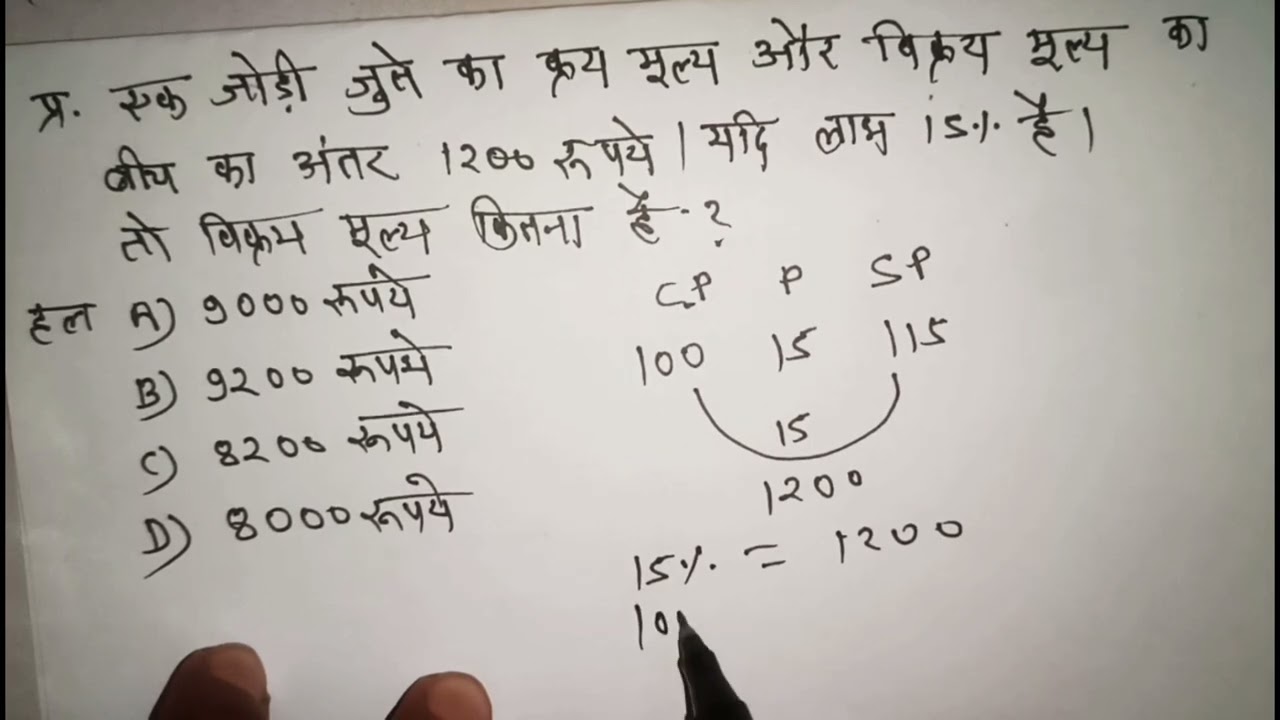 प्र. एक जोड़ी जुते का क्रय मूल्य और विक्रय मूल्य का
बीच का अंतर 1200 रूपये। यदि लाभ 15% है।
तो विक्रय मूल्य कितना है ?
हल A) 9000 रूपये
B) 9200 रूपये
C) 8200 रूपये
D) 8000 रूपये
CP P SP
100 15 115
15
1200
15% = 1200
10